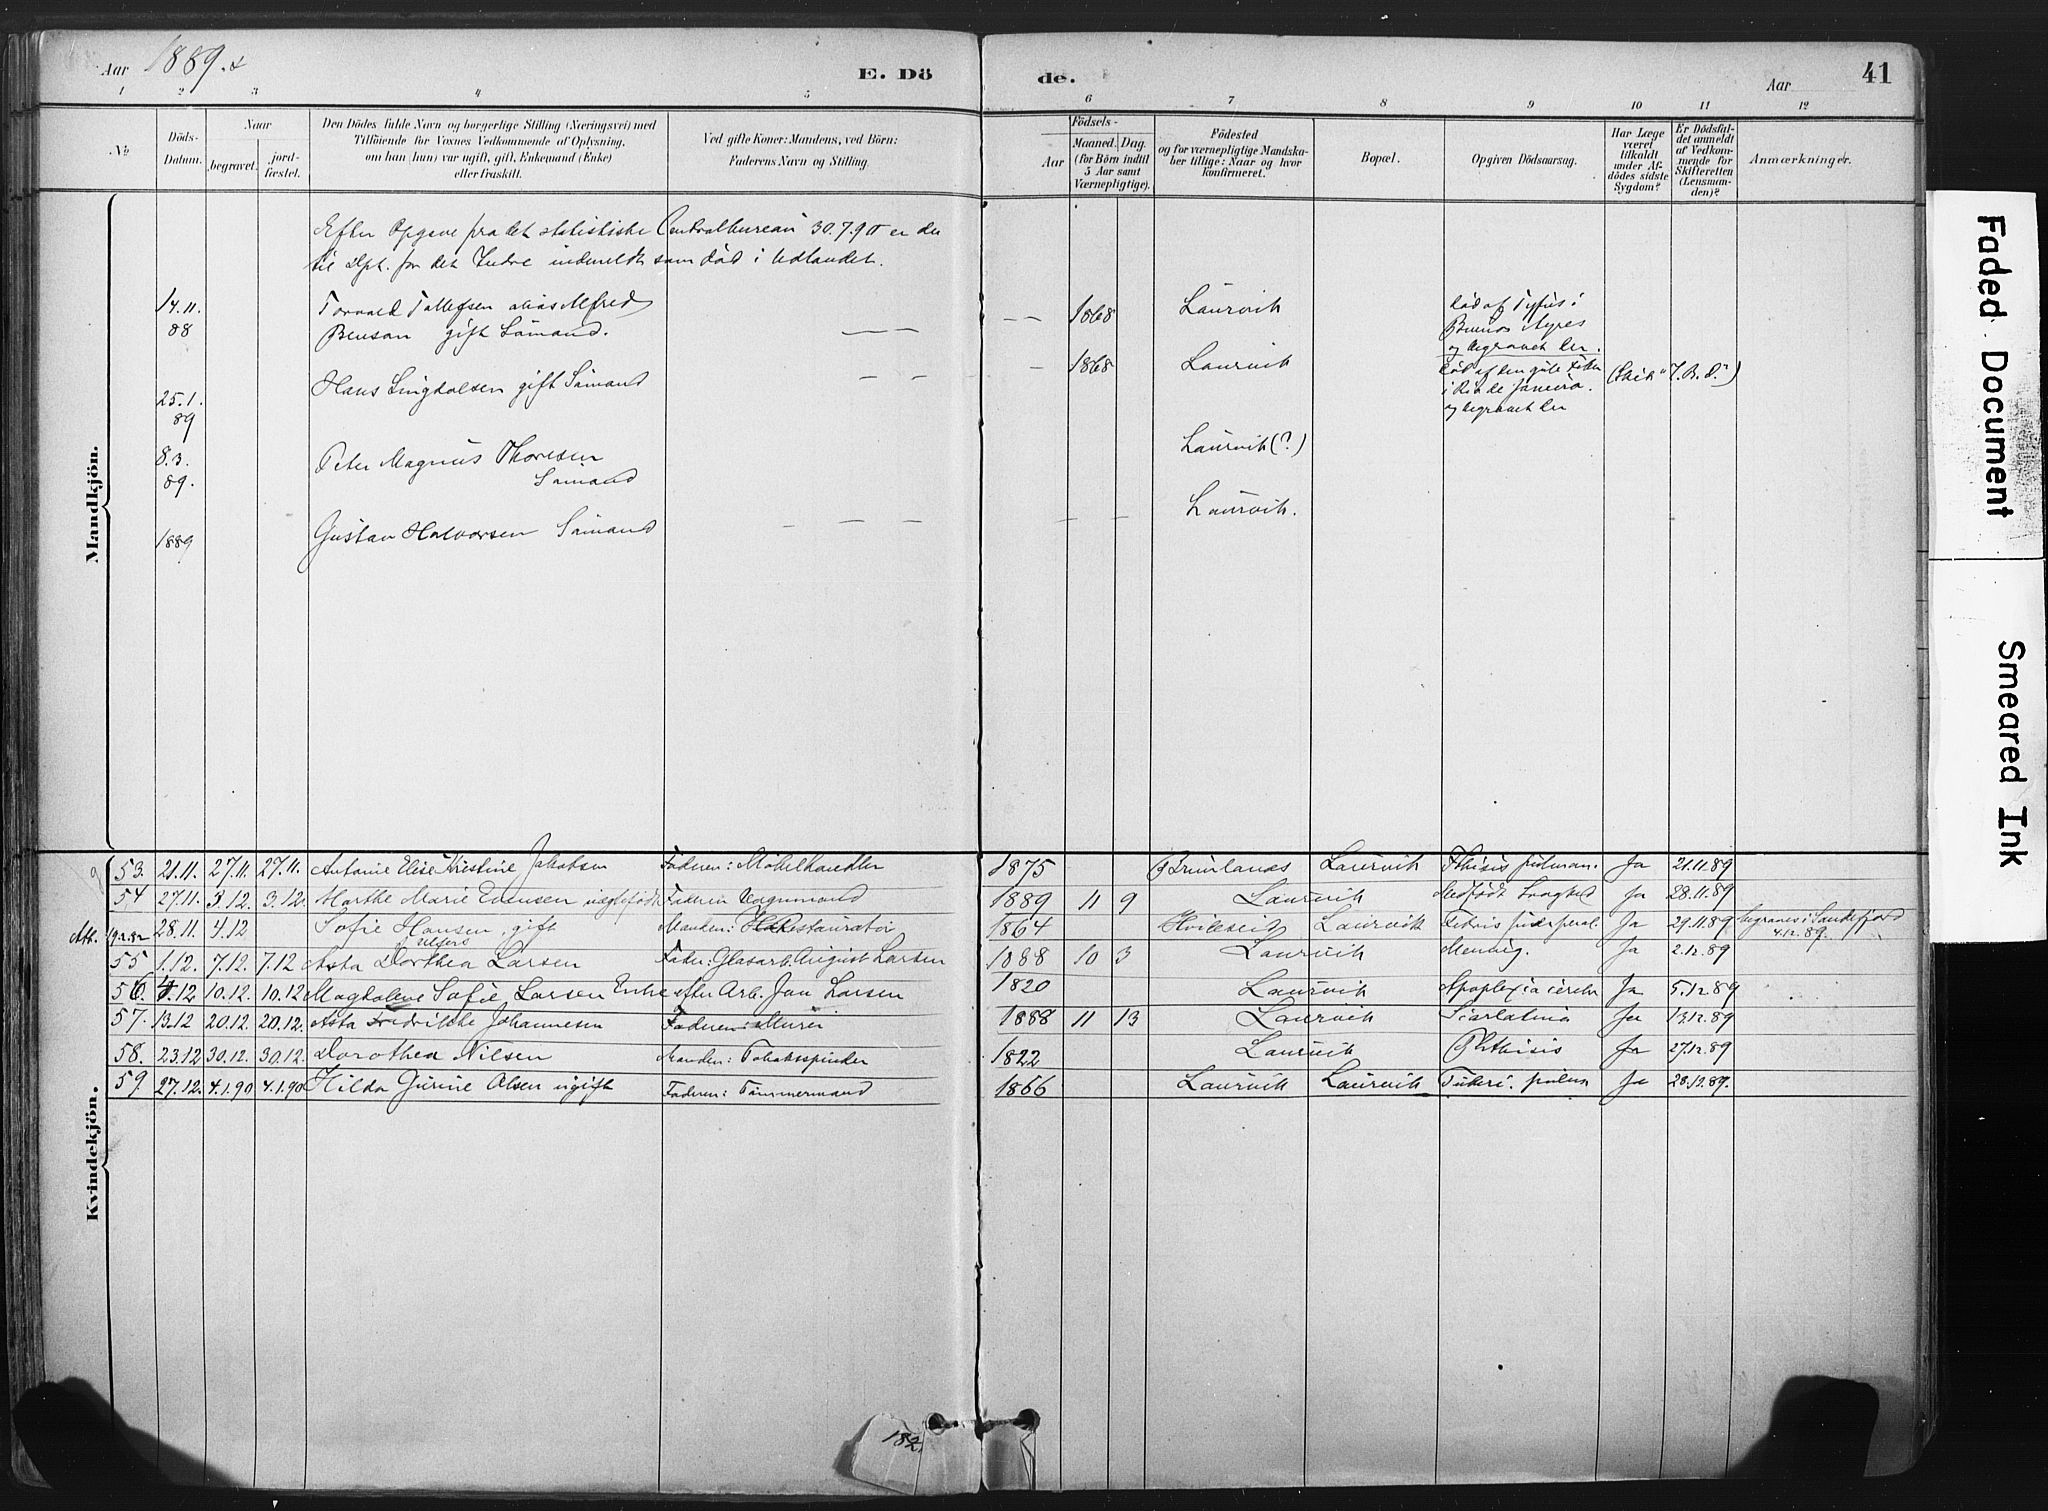 Aar 1889.
E. Dö
de.
Aar
41
1 2 3 4 5 6 7 8 9 10 11 12
No
Döds-Datum.
Naar
begravet.
jord-fæstet.
Den Dödes fulde Navn og borgerlige Stilling (Næringsvei) med
Tilföiende for Voxnes Vedkommende af Oplysning,
om han (hun) var ugift, gift, Enkemand (Enke)
eller fraskilt.
Ved gifte Koner: Mandens, ved Börn:
Faderens Navn og Stilling.
Födsels-
Aar
Maaned. Dag.
(for Börn indtil
5 Aar samt
Værnepligtige).
Födested
og for værnepligtige Mandska-
ber tillige: Naar og hvor
konfirmeret.
Bopæl.
Opgiven Dödsaarsag.
Har Læge
været
tilkaldt
under Af-
dödes sidste
Sygdom?
Er Dödsfal-
det anmeldt
af Vedkom-
mende for
Skifteretten
(Lensman-
den)?
Anmærkninger.
Mandkjön.
Efter Opgave fra det statistiske Centralbureau 30.7.90 er der
til Dpt. for det Indre indmeldt som död i Udlandet.
14.11. Torvald Tollefsen alias Alfred 1868 Laurvik Död af Tyfus i
88 Benson gift Sömand. Buenos Ayres
og begravet der.
25.1. Hans Lingdolsen gift Sömand 1868 Laurvik Död af den gule Feber
89 i Rio de Janeiro.
og begravet der
8.3. Peter Magnus Thoresen Laurvik(?)
89. Sömand
1889 Gustav Halvorsen Sömand Laurvik.
Kvindekjön.
53. 21.11. 27.11. 27.11. Antonie Elise Kristine Jakobsen Faderen: Möbelhandler 1875 Brunlanæs Laurvik Pthisis pulmon. Ja 21.11.89
54 27.11. 3.12. 3.12. Marthe Marie Evensen uægtefödt Faderen Vognmand 1889 11 9 Laurvik Medfödt Svaghed Ja 28.11.89
28.11. 4.12 Sofie Hansen, gift Manden: Restauratör 1864 Hviteseid Laurvik Febris puerperal. Ja 29.11.89 begraves i Sandefjord
4.12.89.
55 1.12. 7.12. 7.12 Asta Dorthea Larsen Fader: Glasarb. August Larsen 1888 10 3 Laurvik Mening. Ja 2.12.89
56. 4.12 10.12. 10.12 Magdalene Sofie Larsen Enke efter Arb. Jan Larsen 1820 Laurvik Apoplexia cerebr Ja 5.12.89
57. 13.12 20.12. 20.12. Asta Fredrikke Johannesen Faderen: Murer 1888 11 13 Laurvik Scarlatina Ja 13.12.89
58. 23.12 30.12. 30.12. Dorothea Nilsen Manden: Tobaksspinder 1822 Laurvik Phthisis Ja 27.12.89
59. 27.12. 4.1.90 4.1.90 Hilda Gurine Olsen ugift Faderen: Tömmermand 1866 Laurvik Laurvik Tuberc. pulm Ja 28.12.89.
182
Faded Document
Smeared Ink